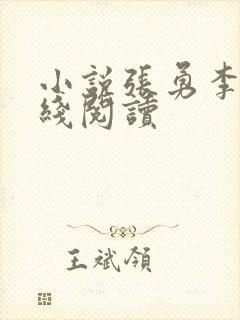 小說張勇李
綫閱讀
王斌領